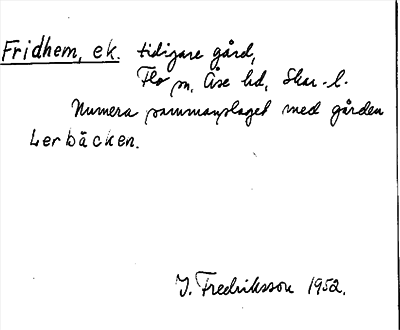 Fridhem, ek. tidigare gård,
Flo sn, Åse hd, Skar. l.
Numera sammanslaget med gården
Lerbäcken.
I. Fredriksson 1952.